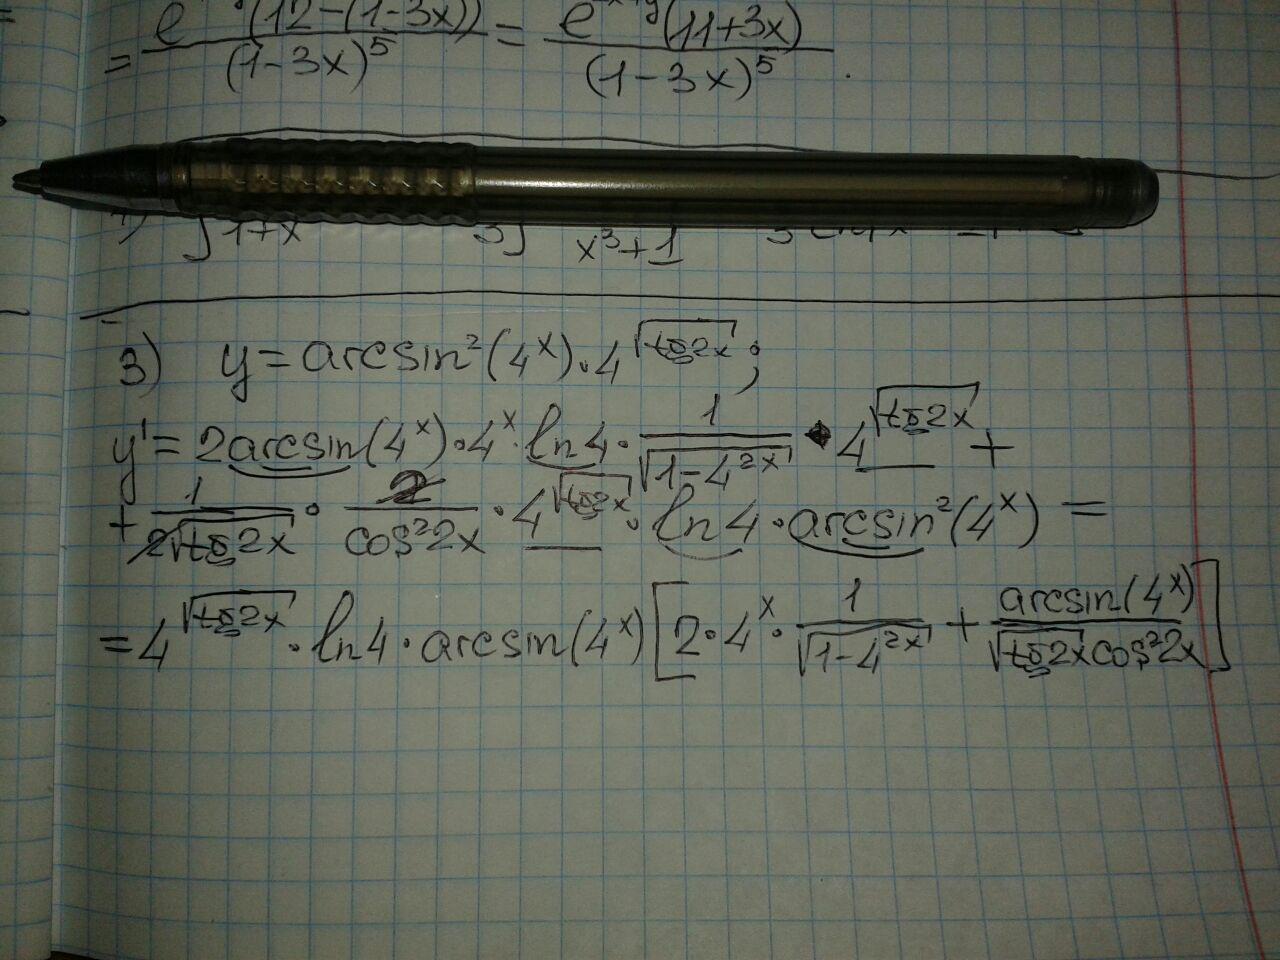 = e (12-(1-3x)) / (1-3x)⁵ = e (11+3x) / (1-3x)⁵ .
1+x 3 x³+1
3) y = arcsin²(4ˣ)·4^√(tg2x) ;
y' = 2arcsin(4ˣ)·4ˣ·ln4· 1/√(1-4²ˣ) · 4^√(tg2x) +
+ 1/(2√(tg2x)) · 2/(cos²2x) · 4^√(tg2x) · ln4 · arcsin²(4ˣ) =
= 4^√(tg2x) · ln4 · arcsin(4ˣ) [2·4ˣ· 1/√(1-4²ˣ) + arcsin(4ˣ)/(√(tg2x) cos²2x)]